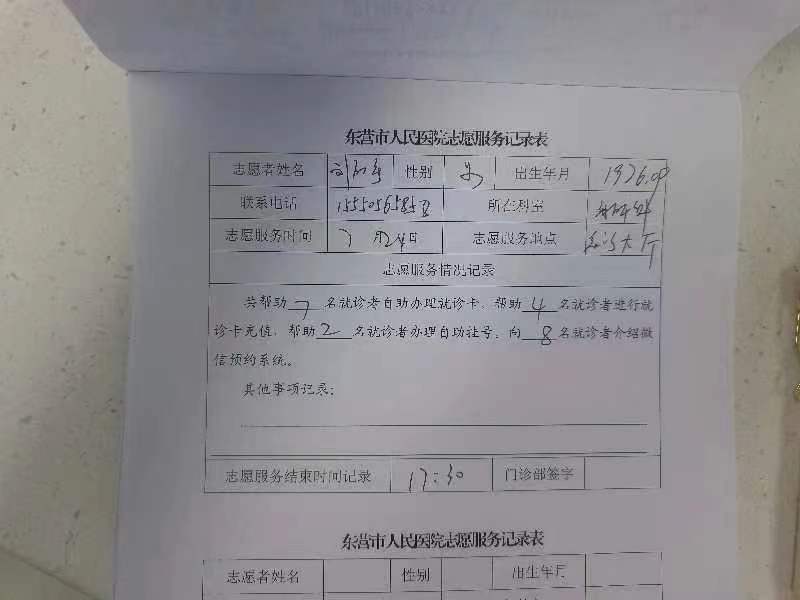 东营市人民医院志愿服务记录表
志愿者姓名 性别 出生年月 1976.09
联系电话 所在科室
志愿服务时间 7月24日 志愿服务地点 门诊大厅
志愿服务情况记录
共帮助 7 名就诊者自助办理就诊卡、帮助 4 名就诊者进行就
诊卡充值、帮助 2 名就诊者办理自助挂号；向 8 名就诊者介绍微
信预约系统。
其他事项记录：
志愿服务结束时间记录 17:30 门诊部签字
东营市人民医院志愿服务记录表
志愿者姓名 性别 出生年月